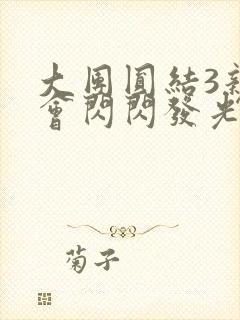 大團圓結3新
會閃閃發光
菊子